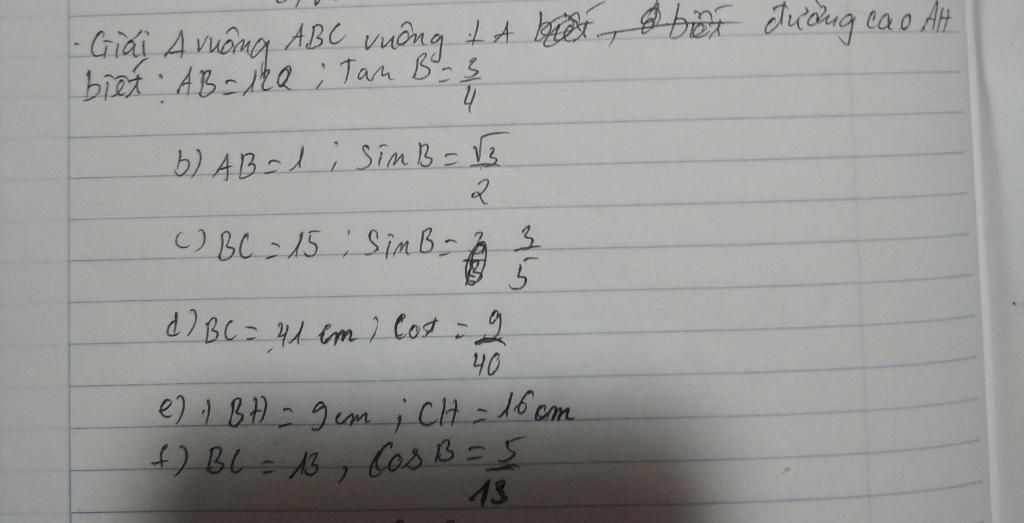 . Giải Δ vuông ABC vuông ⊥ A đường cao AH
biết : AB = 12 ; Tan B = 3/4
b) AB = 1 ; Sin B = √3/2
c) BC = 15 ; Sin B = 3/5
d) BC = 41 cm ; Cot = 9/40
e) BH = 9 cm ; CH = 16 cm
f) BC = 13 , Cos B = 5/13